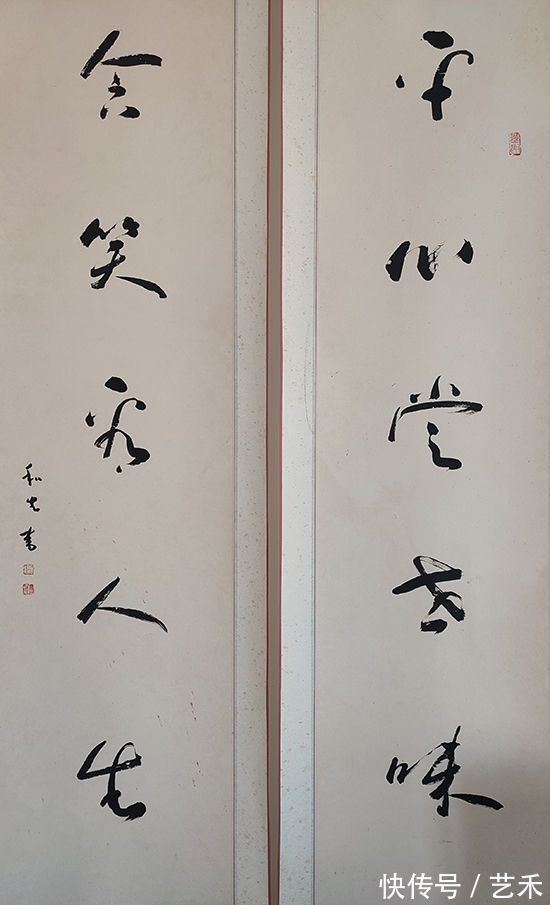 平心尝世味
含笑看人生
和先书
快传号 / 艺禾